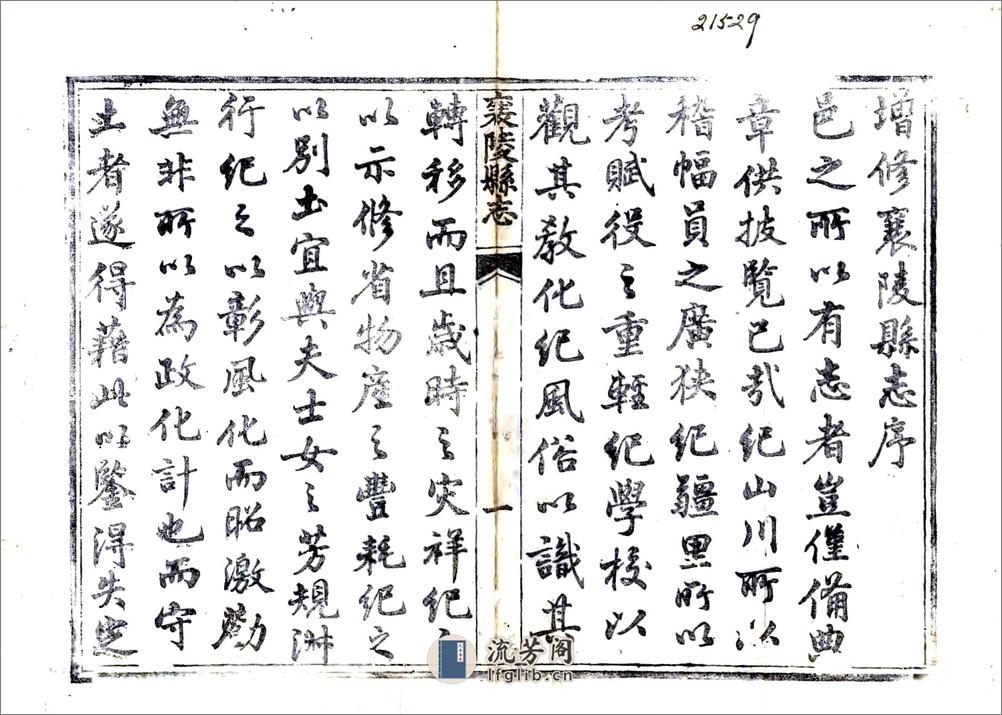 21529
增修襄陵縣志序
邑之所以有志者豈僅備典
章供披覽已哉紀山川所以
稽幅員之廣狹紀疆里所以
考賦役之重輕紀學校以
觀其教化紀風俗以識其
襄陵縣志
一
轉移而且歲時之灾祥紀之
以示修省物產之豐耗紀之
以別土宜與夫士女之芳規淋
行紀之以彰風化而昭激勸
無非所以為政化計也而守
土者遂得藉此以鑒得失定
流芳阁
lfglib.cn